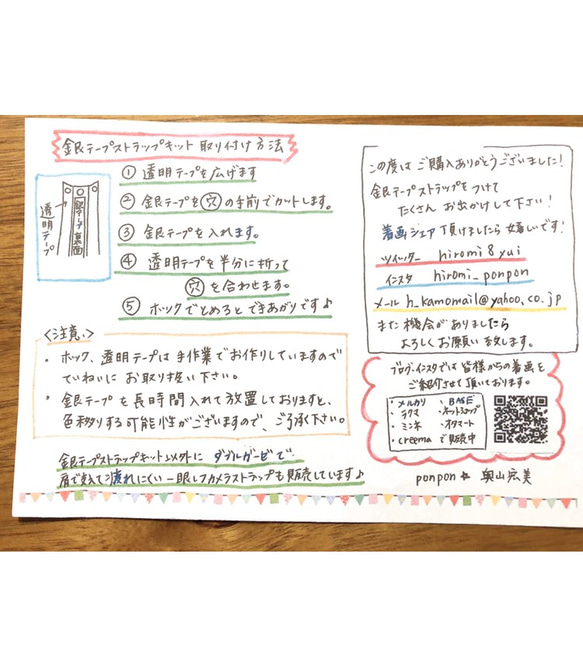 銀テープストラップキット 取り付け方法
① 透明テープを広げます
② 銀テープを穴の手前でカットします。
③ 銀テープを入れます。
④ 透明テープを半分に折って
穴を合わせます。
⑤ ホックでとめるとできあがりです♪
透明テープ
銀テープ裏面
<注意>
・ホック、透明テープは手作業でお作りしていますので
ていねいにお取り扱い下さい。
・銀テープを長時間入れて放置しておりますと、
色移りする可能性がございますので、ご了承下さい。
銀テープストラップキット以外に ダブルガーゼで
肩で支えて壊れにくい一眼レフカメラストラップも販売しています♪
この度はご購入ありがとうございました!
銀テープストラップをつけて
たくさんお出かけして下さい!
着画シェア頂けましたら嬉いです!
ツイッター hiromi8yui
インスタ hiromi_ponpon
メール h_kamomail@yahoo.co.jp
また機会がありましたら
よろしくお願い致します。
ブログ・インスタでは皆様からの着画を
ご紹介させて頂いております。
・メルカリ ・BASE
・ラクマ ・ネットショップ
・ミンネ ・オタマート
・creema で販売中
ponpon☆ 奥山宏美